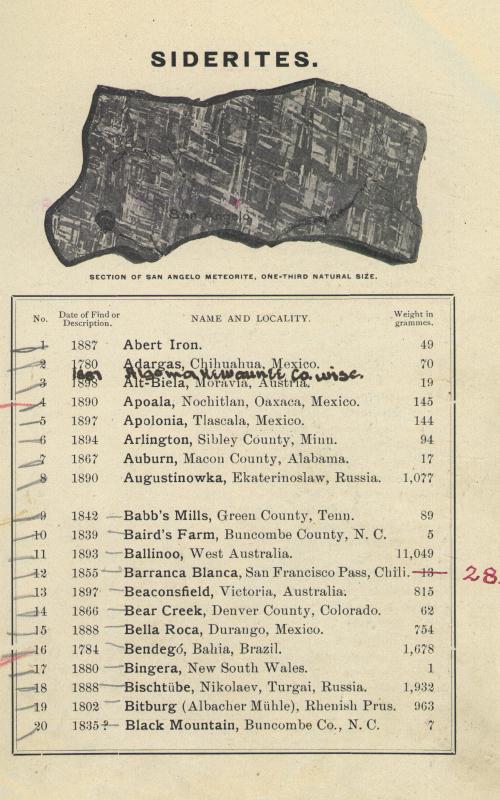 SIDERITES.
San Angelo
SECTION OF SAN ANGELO METEORITE, ONE-THIRD NATURAL SIZE.
No. Date of Find or Description. NAME AND LOCALITY. Weight in grammes.
1 1887 Abert Iron. 49
2 1780 Adargas, Chihuahua, Mexico. 70
1887 Algoma Kewaunee Co. Wisc.
3 1898 Alt-Biela, Moravia, Austria. 19
4 1890 Apoala, Nochitlan, Oaxaca, Mexico. 145
5 1897 Apolonia, Tlascala, Mexico. 144
6 1894 Arlington, Sibley County, Minn. 94
7 1867 Auburn, Macon County, Alabama. 17
8 1890 Augustinowka, Ekaterinoslaw, Russia. 1,077
9 1842 Babb's Mills, Green County, Tenn. 89
10 1839 Baird's Farm, Buncombe County, N. C. 5
11 1893 Ballinoo, West Australia. 11,049
12 1855 Barranca Blanca, San Francisco Pass, Chili. 13 28
13 1897 Beaconsfield, Victoria, Australia. 815
14 1866 Bear Creek, Denver County, Colorado. 62
15 1888 Bella Roca, Durango, Mexico. 754
16 1784 Bendegó, Bahia, Brazil. 1,678
17 1880 Bingera, New South Wales. 1
18 1888 Bischtübe, Nikolaev, Turgai, Russia. 1,932
19 1802 Bitburg (Albacher Mühle), Rhenish Prus. 963
20 1835? Black Mountain, Buncombe Co., N. C. 7